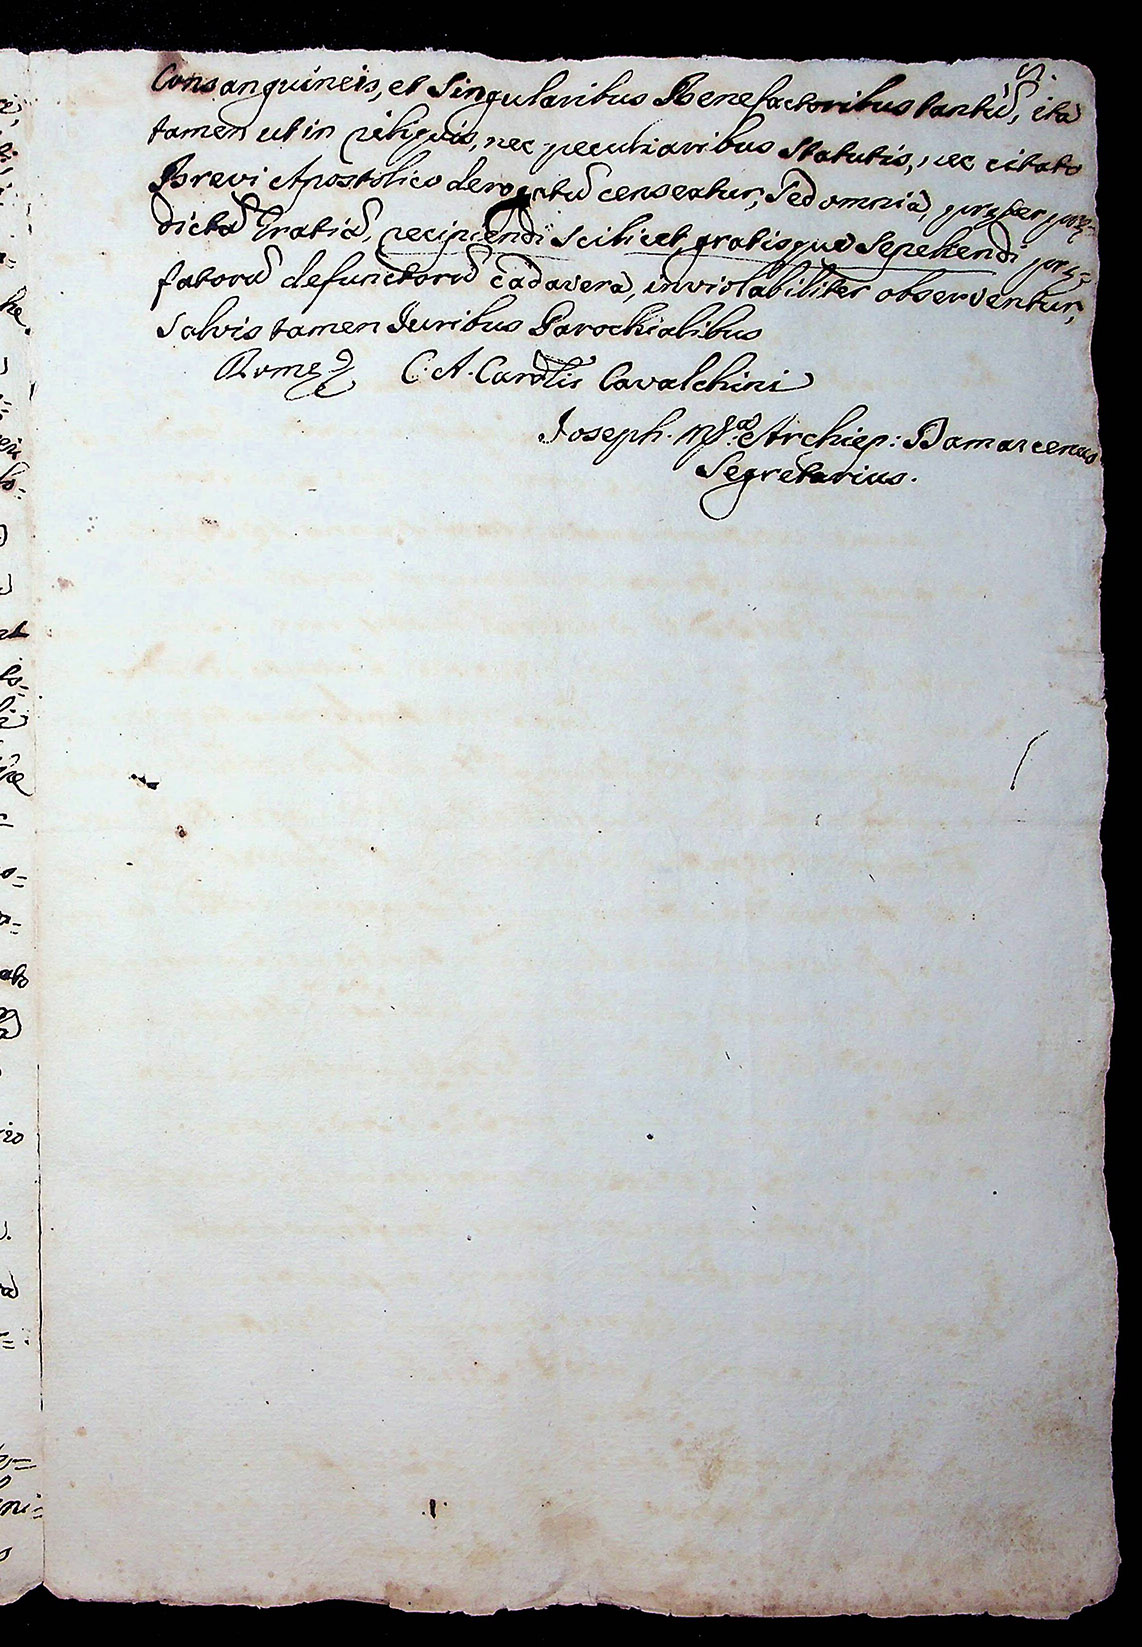 5.
Consanguineis, et Singularibus Benefactoribus tantũ, ita
tamen ut in reliquis, nec peculiaribus Statutis, nec citato
Brevi Apostolico derogatũ censeatur, Sed omnia, præter præ-
dictã Gratiã, recipiendi scilicet, gratisque Sepeliendi præ-
fatorũ defunctorũ cadavera, inviolabiliter observentur,
Salvis tamen Juribus Parochialibus
Romæ C. A. Card̃lis Cavalchini
Joseph. Mª. Archiep: Damascenus
Segretarius.